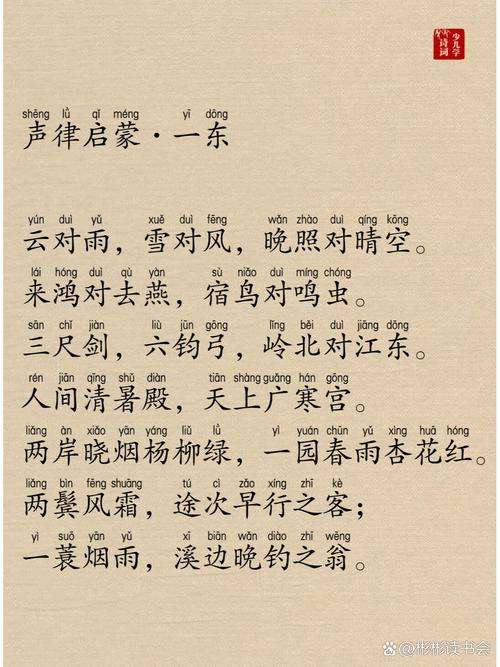 少儿学
诗词
shēng lǜ qǐ méng yī dōng
声律启蒙·一东
yún duì yǔ xuě duì fēng wǎn zhào duì qíng kōng
云对雨，雪对风，晚照对晴空。
lái hóng duì qù yàn sù niǎo duì míng chóng
来鸿对去燕，宿鸟对鸣虫。
sān chǐ jiàn liù jūn gōng lǐng běi duì jiāng dōng
三尺剑，六钧弓，岭北对江东。
rén jiān qīng shǔ diàn tiān shàng guǎng hán gōng
人间清暑殿，天上广寒宫。
liǎng àn xiǎo yān yáng liǔ lǜ yì yuán chūn yǔ xìng huā hóng
两岸晓烟杨柳绿，一园春雨杏花红。
liǎng bìn fēng shuāng tú cì zǎo xíng zhī kè
两鬓风霜，途次早行之客；
yì suō yān yǔ xī biān wǎn diào zhī wēng
一蓑烟雨，溪边晚钓之翁。
@彬彬读书会